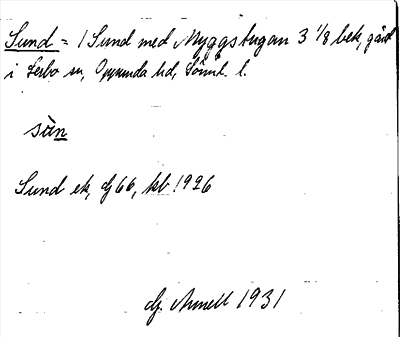 Sund = 1 Sund med Myggstugan 3 1/8 bek, gård
i Lerbo sn, Oppunda hd, Söml. l.
sùn
Sund ek, dj 66, kbl 1926
Dj. Arnell 1931